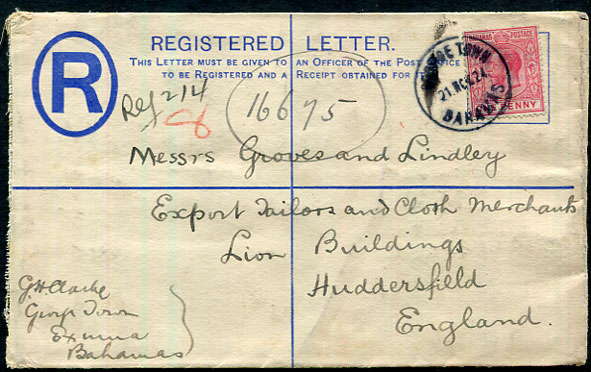 R
REGISTERED LETTER.
THIS LETTER MUST BE GIVEN TO AN OFFICER OF THE POST OFFICE
TO BE REGISTERED AND A RECEIPT OBTAINED FOR IT
BAHAMAS POSTAGE
PENNY
TOWN
21. NO. 24
BAHAMAS
Reg 214
166 75
Messrs Groves and Lindley
Export Tailors and Cloth Merchants
Lion Buildings
Huddersfield
England.
G H Clarke
George Town
Exuma
Bahamas